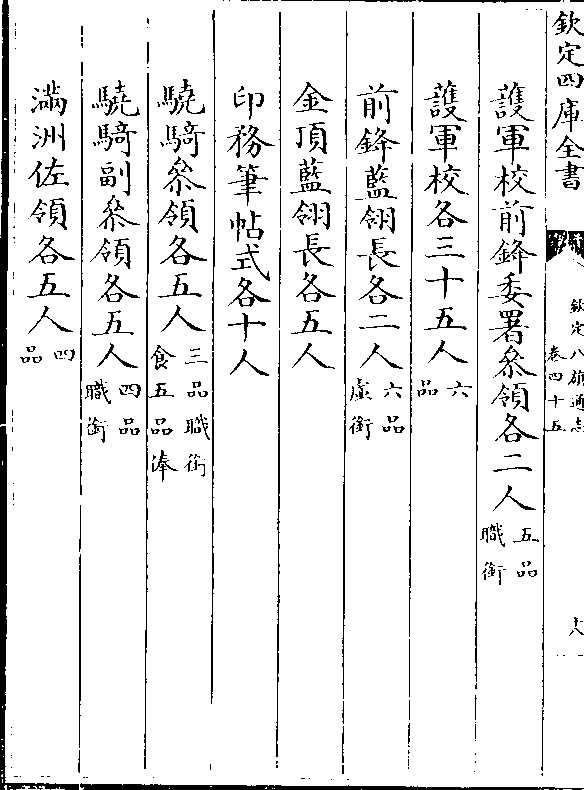 欽定四庫全書
欽定八旗通志
卷四十五
十八
護軍校前鋒委署叅領各二人五品職銜
護軍校各三十五人六品
前鋒藍翎長各二人六品虛銜
金頂藍翎長各五人
印務筆帖式各十人
驍騎叅領各五人三品職銜食五品俸
驍騎副叅領各五人四品職銜
滿洲佐領各五人四品